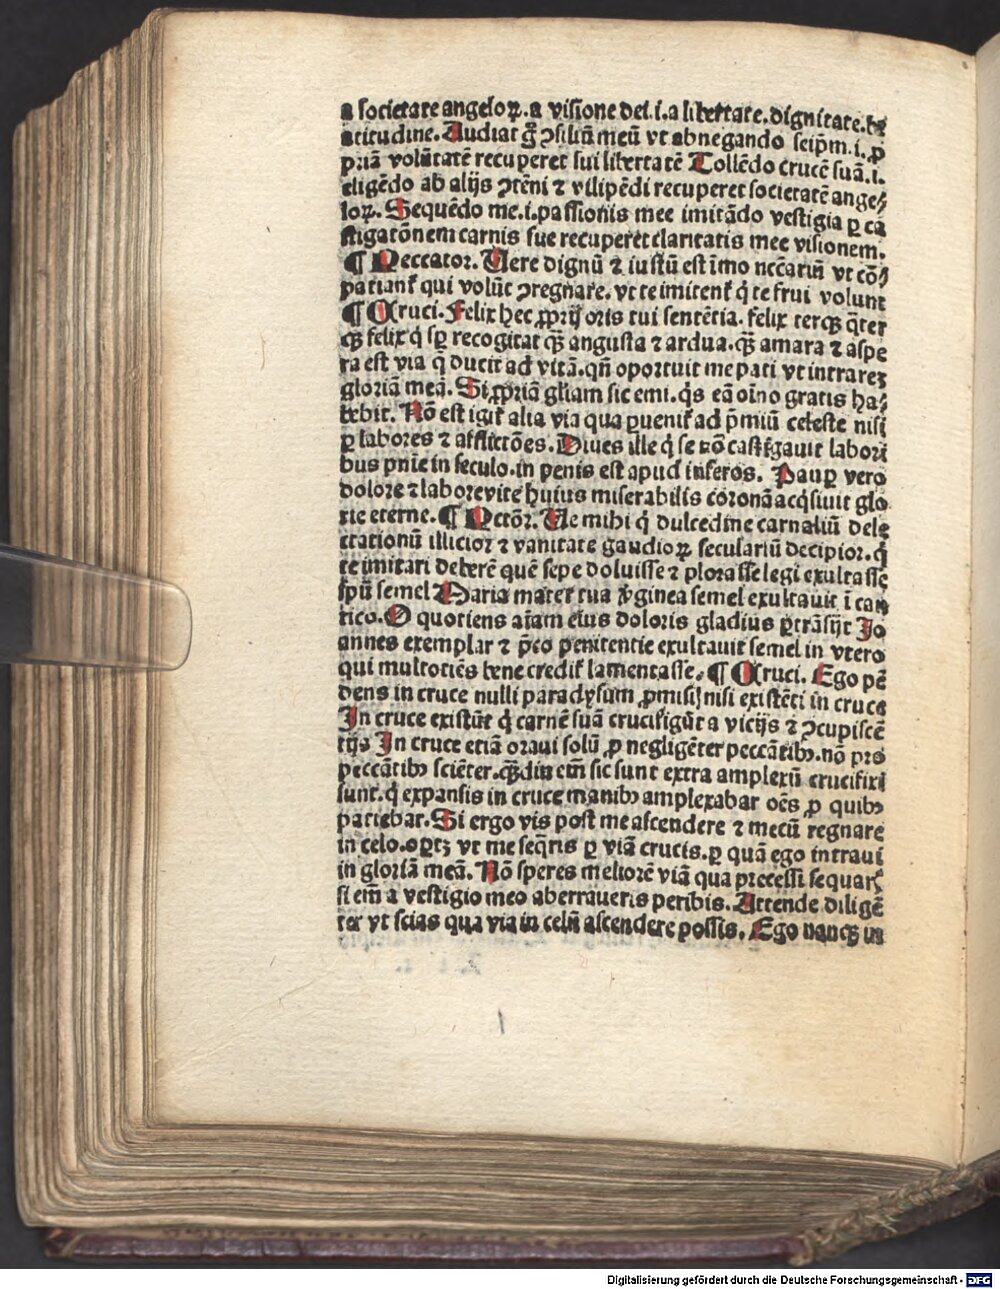 a societate angeloꝝ. a visione dei .i. a libertate. dignitate. be
atitudine. Audiat g̊ ꝯsiliū meū vt abnegando seip̄m .i. ꝓ
priā volūtatē recuperet sui libertatē Tollēdo crucē suā .i.
eligēdo ab alijs ꝯtēni ⁊ vilipēdi recuperet societatē ange⸗
loꝝ. Sequēdo me .i. passionis mee imitādo vestigia ꝑ ca
stigatōnem carnis sue recuperet claritatis mee visionem.
¶ Peccator. Uere dignū ⁊ iustū est īmo nc̄cariū vt cō⸗
patianť qui volūt ꝯregnare. vt te imitenť q̇ te frui volunt
¶ Cruci. Felix hec ꝓprij oris tui sentētia. felix terqꝫ q̄ter
qꝫ felix q̇ sꝑ recogitat qꝫ̄ angusta ⁊ ardua. qꝫ̄ amara ⁊ aspe
ra est via q̄ ducit ad vitā. qn̄ oportuit me pati vt intrareꝫ
gloriā meā. Si ꝓpriā gl̄iam sic emi. q̇s eā oīno gratis ha⸗
bebit. Nō est igiť alia via qua ꝑueniť ad p̄miū celeste nisi
ꝑ labores ⁊ afflictōes. Diues ille q̇ se nō castigauit labori
bus pn̄ie in seculo. in penis est apud inferos. Pauꝑ vero
dolore ⁊ labore vite huius miserabilis coronā acq̇siuit glo
rie eterne. ¶ Pctōr. Ue mihi q̇ dulcedine carnaliū dele
ctationū illicior ⁊ vanitate gaudioꝝ seculariū decipior. q̇
te imitari deberē quē sepe doluisse ⁊ plorasse legi exultasse
sp̄u semel Maria mater tua v̇ginea semel exultauit ī can
tico. O quotiens aīam eius doloris gladius ꝑtrāsijt Jo
annes exemplar ⁊ p̄co penitentie exultauit semel in vtero
qui multotiēs bene crediť lamentasse. ¶ Cruci. Ego pē
dens in cruce nulli paradysum ꝓmisi, nisi existēti in cruce
In cruce existūt q̇ carnē suā crucifigūt a vicijs ⁊ ꝯcupiscē
tijs In cruce etiā oraui solū ꝓ negligēter peccātibꝰ. nō pro
peccātibꝰ sciēter. qꝫ̄diu em̄ sic sunt extra amplexū crucifixi
sunt. q̇ expansis in cruce manibꝰ amplexabar oēs ꝓ quibꝰ
patiebar. Si ergo vis post me ascendere ⁊ mecū regnare
in celo. oꝑtꝫ vt me seq̄ris ꝑ viā crucis. ꝑ quā ego intraui
in gloriā meā. Nō speres meliorē viā qua precessi sequaris
si em̄ a vestigio meo aberraueris peribis. Attende diligē
ter vt scias qua via in celū ascendere possis. Ego nanqꝫ in
Digitalisierung gefördert durch die Deutsche Forschungsgemeinschaft - DFG